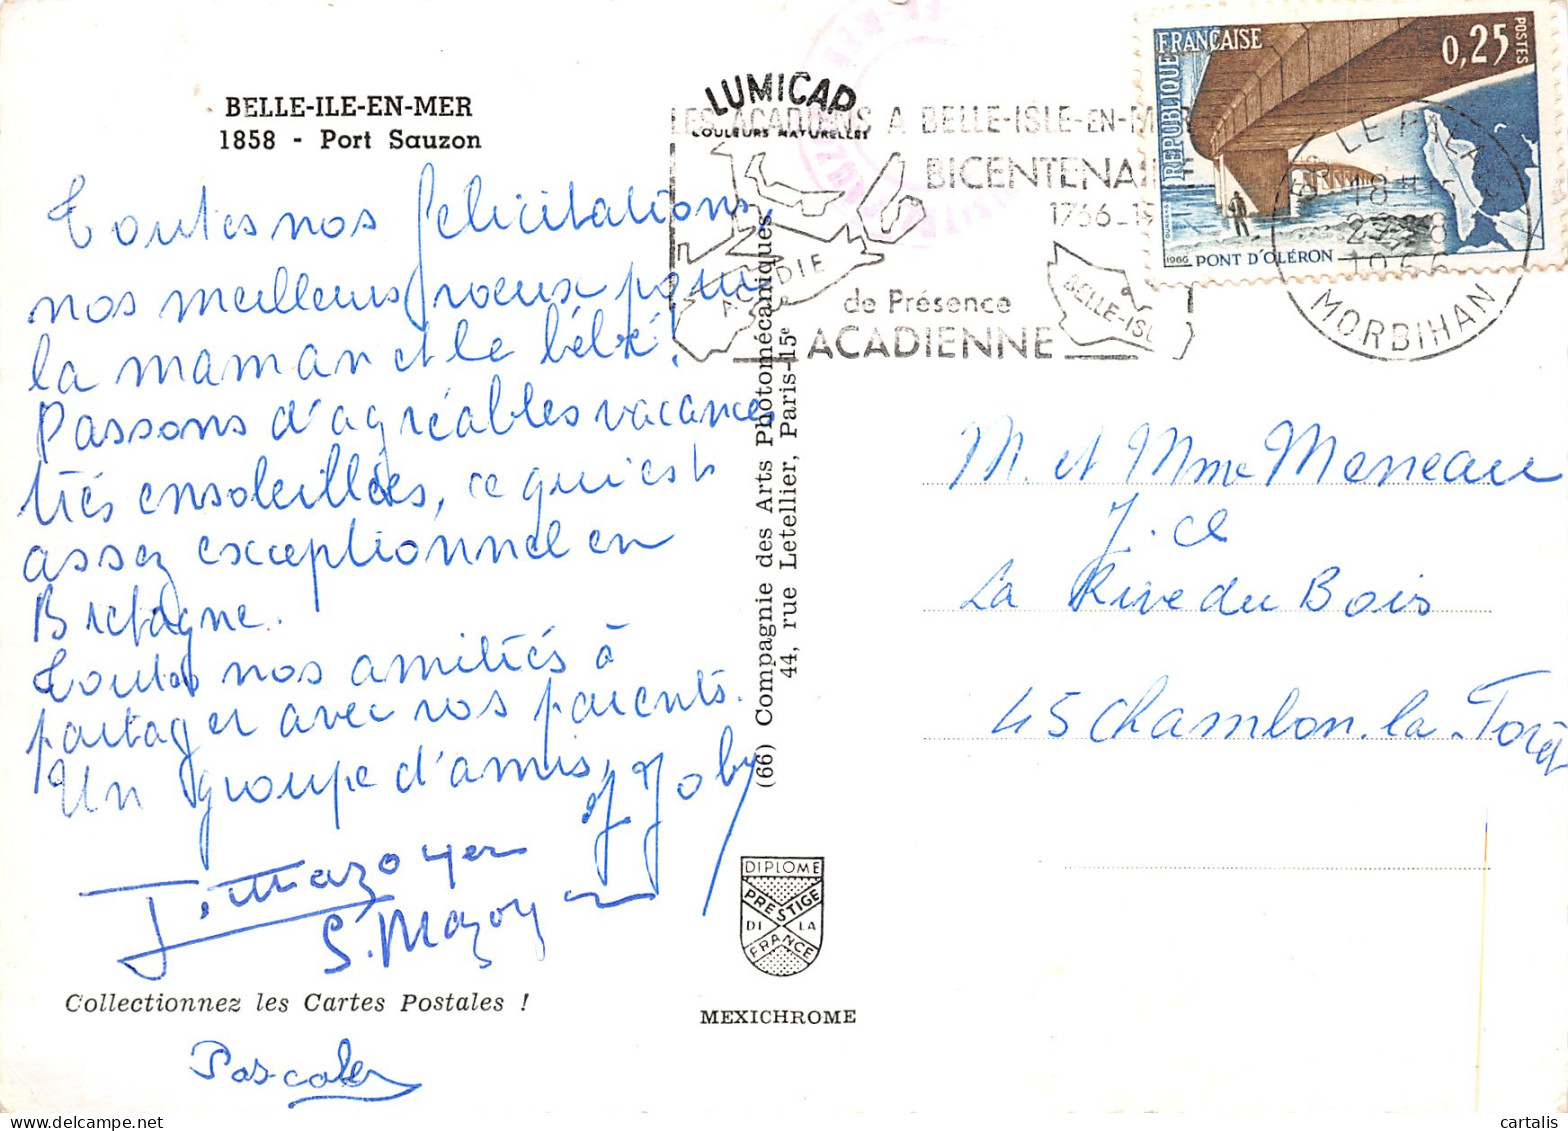 BELLE-ILE-EN-MER
1858 - Port Sauzon
Toutes nos felicitations,
nos meilleurs voeux pour
la maman et le bébé!
Passons d'agréables vacances
très ensoleillées, ce qui est
assez exceptionnel en
Bretagne.
Toutes nos amitiés à
partager avec vos parents.
Un groupe d'amis,
J Joby
J. Mazoyer
S. Mazoyer
Collectionnez les Cartes Postales !
Pascale
LUMICAP
COULEURS NATURELLES
(66) Compagnie des Arts Photomécaniques
44, rue Letellier, Paris-15e
DIPLOME
PRESTIGE
DI LA
FRANCE
MEXICHROME
LES ACADIENS A BELLE-ISLE-EN-MER
BICENTENAI
1766-19
de Présence
ACADIENNE
ACADIE
BELLE-ISL
REPUBLIQUE
FRANÇAISE
0,25
POSTES
1966 PONT D'OLÉRON
LE PALA
18 H
23-8
1966
MORBIHAN
M. et Mme Meneau
J. cl
La Rive du Bois
45 Chambon.la-Forêt
cartalis